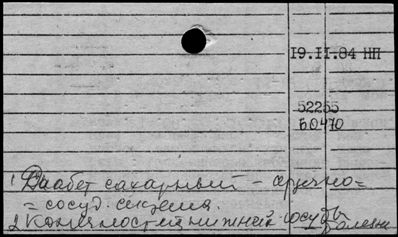 19.II.84 НП
52255
60470
1 Диабет сахарный - сердечно=
= сосуд. система.
2 Конечностей нижний сосуды
болезни